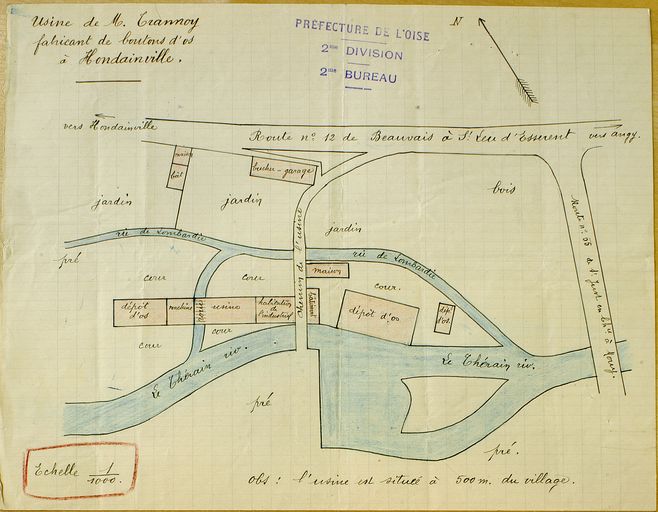 Usine de M. Trannoy
fabricant de boutons d'os
à Hondainville.
PRÉFECTURE DE L'OISE
2me DIVISION
2me BUREAU
N
vers Hondainville
Route n° 12 de Beauvais à St Leu d'Esserent
vers Angy.
maison
bât
bucher-garage
jardin
jardin
jardin
bois
Chemin de l'usine
ru de Lombardie
ru de Lombardie
pré
cour
cour
maison
cour.
dépôt
d'os
machine
usine
habitation
de
l'industriel
bâtiment
dépôt d'os
dépôt
d'os
cour
cour
Le Thérain riv.
Le Thérain riv.
pré
pré.
Echelle 1/1000.
obs : l'usine est située à 500 m. du village.